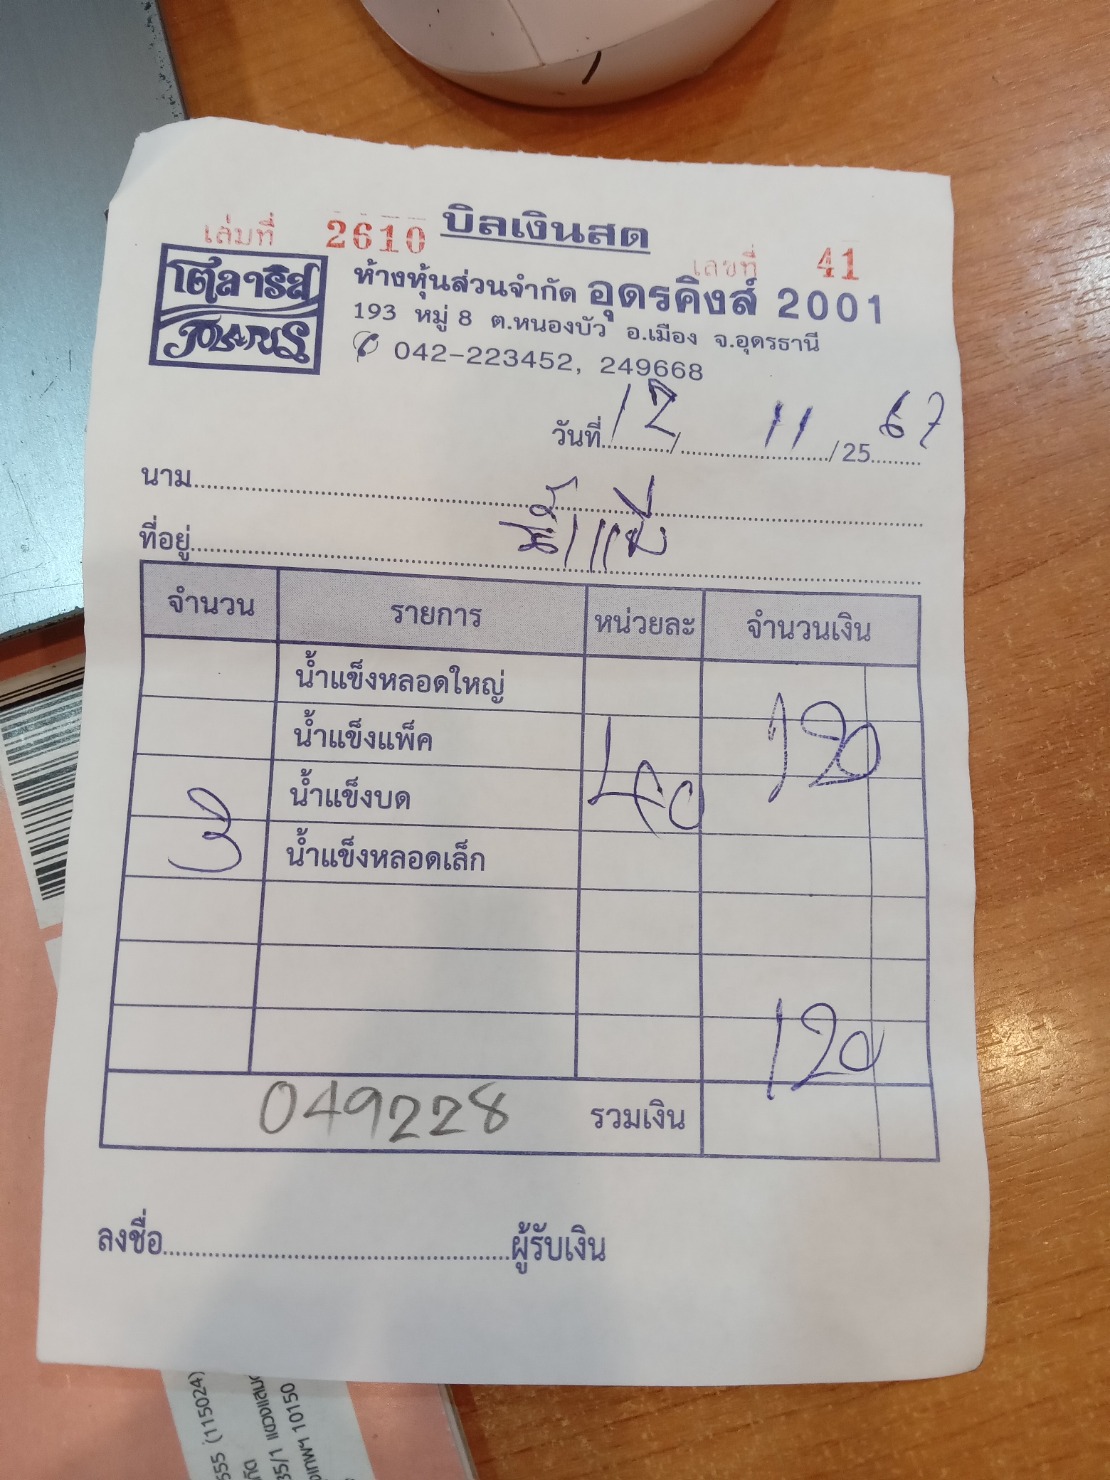 บิลเงินสด
เล่มที่ 2610 เลขที่ 41
โตลาริส
POLARIS
ห้างหุ้นส่วนจำกัด อุดรคิงส์ 2001
193 หมู่ 8 ต.หนองบัว อ.เมือง จ.อุดรธานี
042-223452, 249668
วันที่ 12 / 11 / 25 67
นาม
ที่อยู่
จำนวน รายการ หน่วยละ จำนวนเงิน
น้ำแข็งหลอดใหญ่
น้ำแข็งแพ็ค 120
น้ำแข็งบด 40
3 น้ำแข็งหลอดเล็ก
120
049228 รวมเงิน
ลงชื่อ ผู้รับเงิน
555 (115024)
35/1
10150